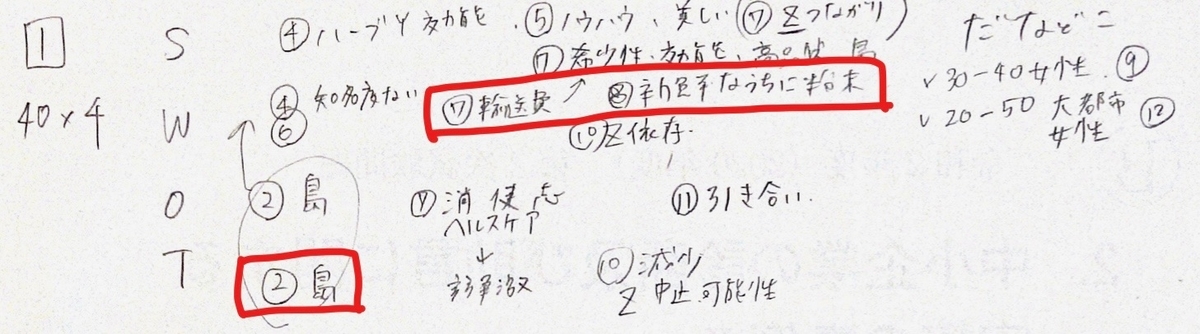 1 S ④ハーブY 効能、⑤ノウハウ、美しい(⑦Zつながり)
⑦希少性、効能、高品質 島
40×4 W ④知名度ない
⑥
⑦輸送費 ↗ ⑧新鮮なうちに粉末
⑩Z依存.
O ②島 ④消 健 志
ヘルスケア
↓
競争激
⑪引き合い.
T ②島 ⑩減少
Z 中止可能性
だなどこ
✓30-40女性 ⑨
✓20-50 大都市
女性 ⑫